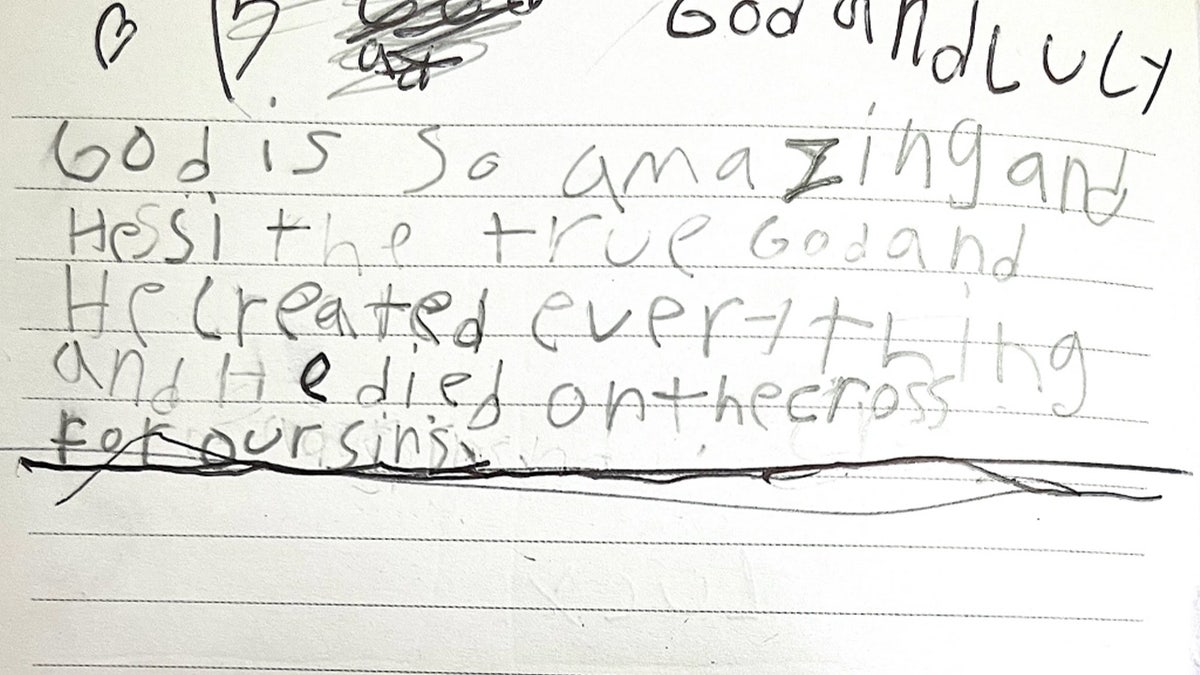 God and LULY
God is so amazing and
Hessi the true God and
He created every thing
and He died on the cross
For our sins.